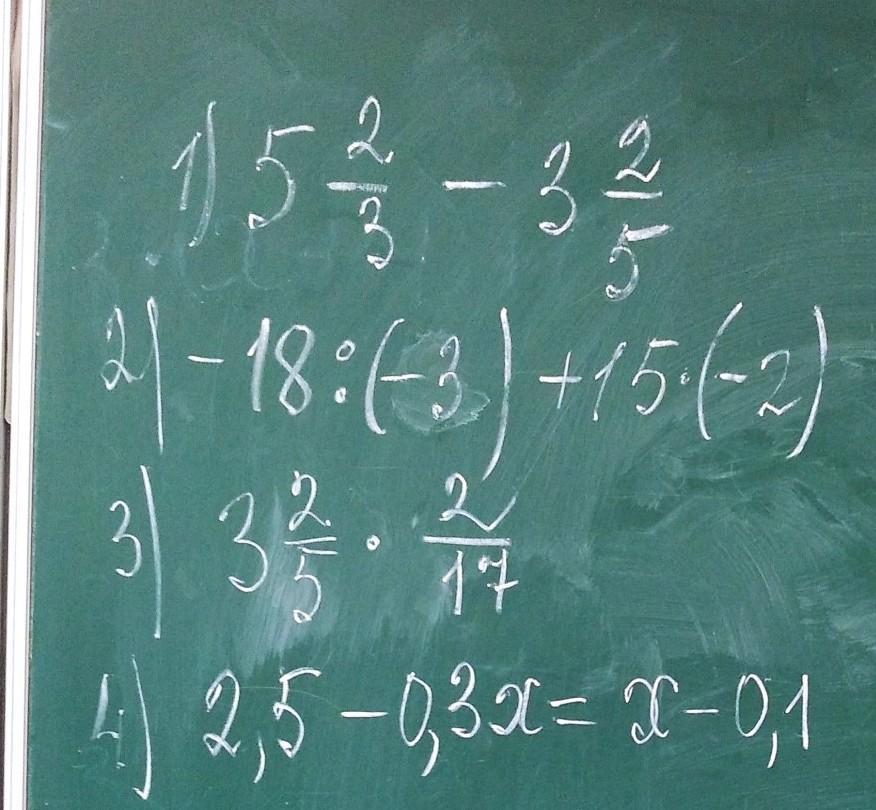 1) 5 2/3 - 3 2/5
2) -18:(-3)+15·(-2)
3) 3 2/5 · 2/17
4) 2,5-0,3x=x-0,1